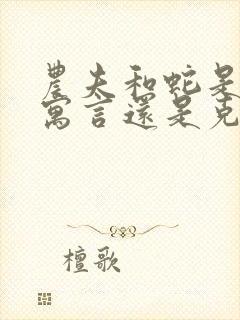 農夫和蛇是
寓言還是克
檀歌